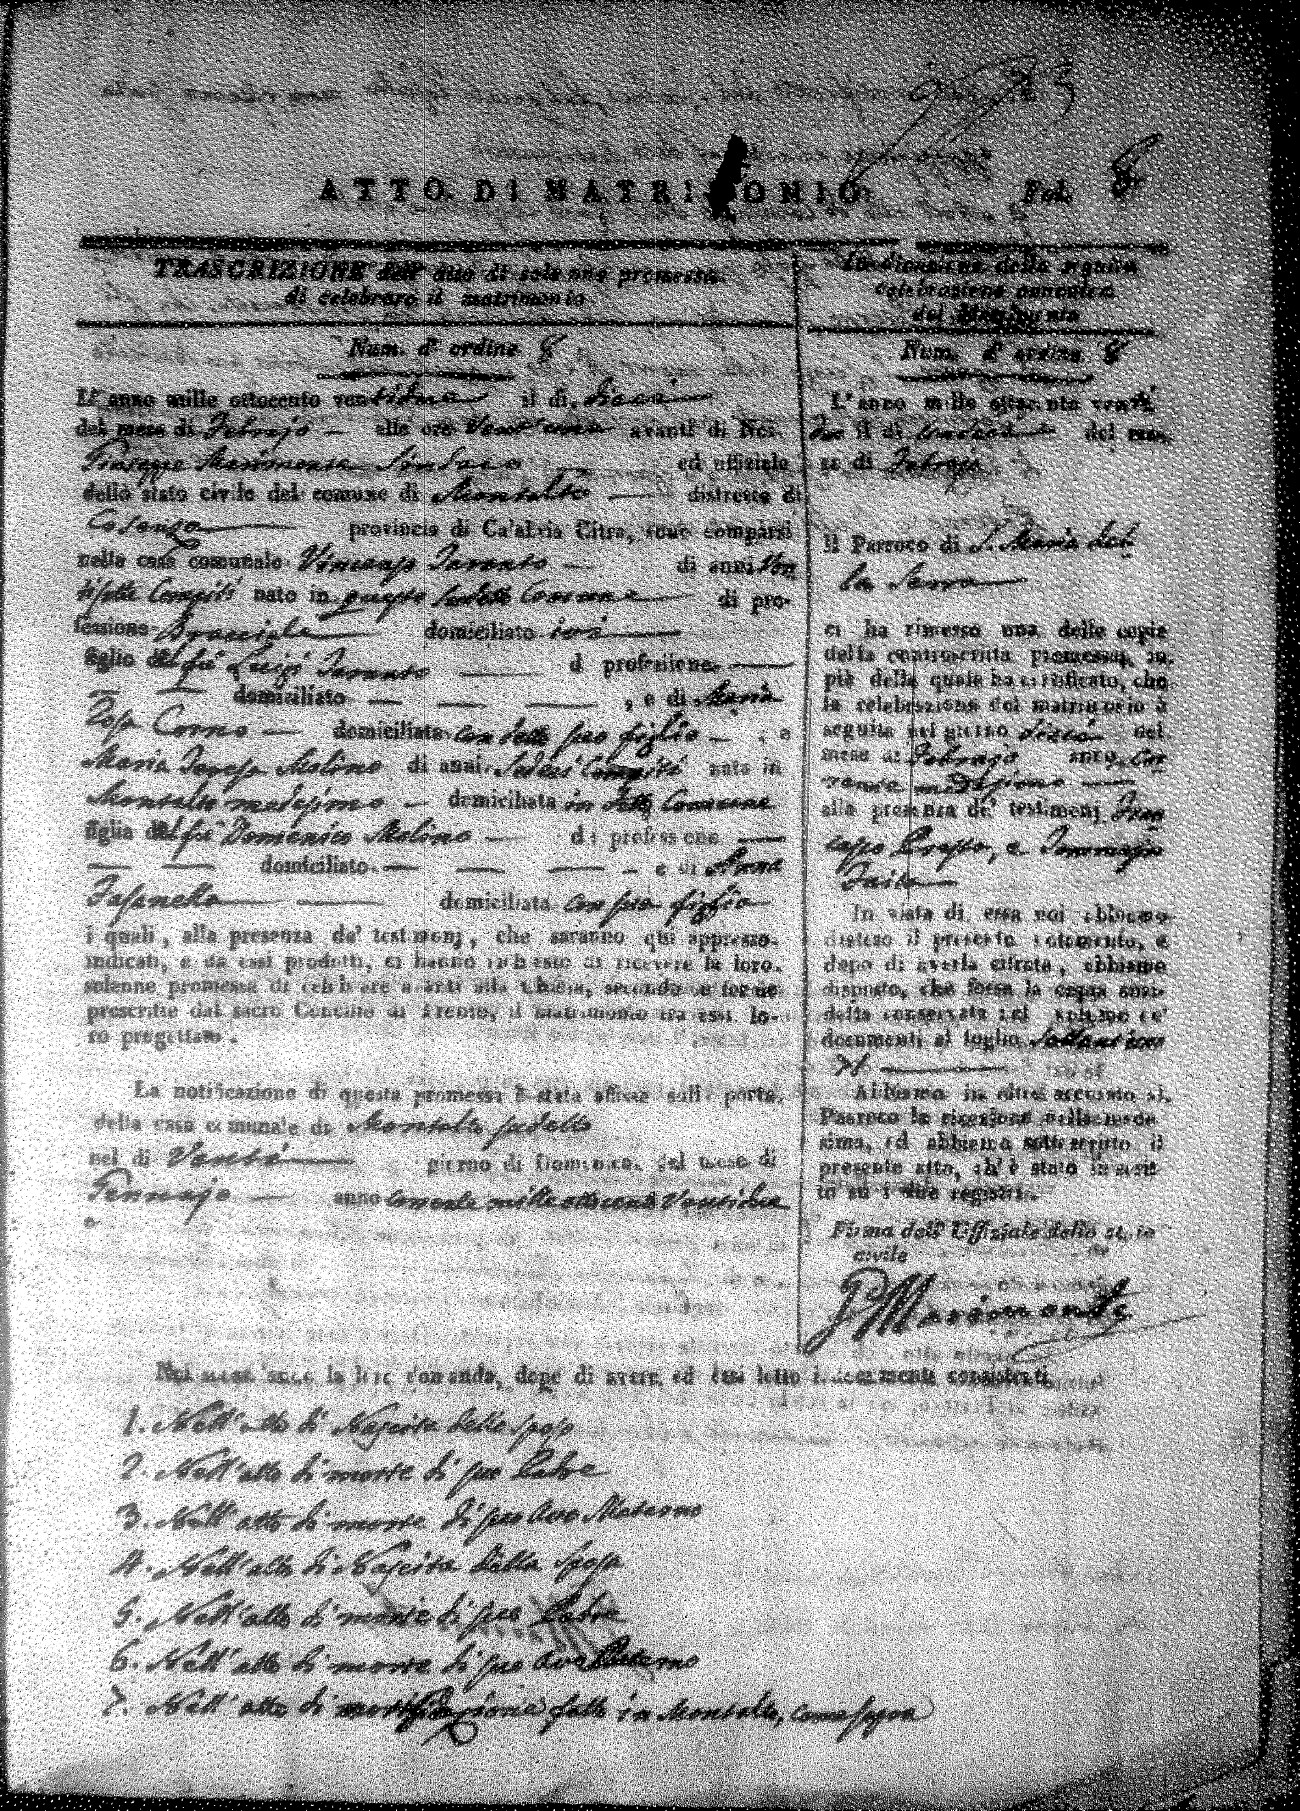 ATTO DI MATRIMONIO Fol. 8
TRASCRIZIONE dell' atto di solenne promessa
di celebrare il matrimonio
Num. d' ordine 8
L' anno mille ottocento ventidue il dì dieci
del mese di Febrajo alle ore avanti di Noi
Giuseppe Marimonte Sindaco ed uffiziale
dello stato civile del comune di Montalto distretto di
Cosenza provincia di Calabria Citra, sono comparsi
nella casa comunale Vincenzo Taranto di anni Ven
tisette Compiti nato in questo sudetto Comune di pro-
fessione Bracciale domiciliato ivi
figlio del fù Luigi Taranto d professione
domiciliato , e di Maria
Rosa Corno domiciliata con detto suo figlio , e
Maria Teresa Molino di anni Sedici Compiti nata in
Montalto medesimo domiciliata in detto Comune
figlia del fù Domenico Molino di professione
domiciliato e di Anna
Fasanella domiciliata con sua figlia
i quali, alla presenza de' testimonj, che saranno qui appresso
indicati, e da essi prodotti, ci hanno richiesto di ricevere la loro
solenne promessa di celebrare avanti alla Chiesa, secondo le forme
prescritte dal sacro Concilio di Trento, il matrimonio tra essi lo-
ro progettato.
La notificazione di questa promessa è stata affissa sulla porta
della casa comunale di Montalto sudetto
nel dì Venti giorno di Domenica del mese di
Gennajo anno corrente mille ottocento Ventidue
Indicazione della seguita
celebrazione canonica
del Matrimonio
Num. d' ordine 8
L' anno mille ottocento venti
due il dì undeci del me-
se di Febrajo
Il Parroco di S. Maria del
la Serra
ci ha rimesso una delle copie
della controscritta promessa, in
piè della quale ha certificato, che
la celebrazione del matrimonio è
seguita nel giorno dieci del
mese di Febrajo anno Cor
rente medesimo
alla presenza de' testimonj Fran
cesco e Tommaso
In vista di essa noi abbiamo
disteso il presente notamento, e
dopo di averla cifrata, abbiamo
disposto, che fosse la copia sud-
detta conservata nel volume de'
documenti al foglio
Abbiamo in oltre accusato al
Parroco la ricezione della mede-
sima, ed abbiamo sottoscritto il
presente atto, ch' è stato inscrit-
to su i due registri.
Firma dell' Uffiziale dello stato
civile
G. Marimonte
Noi secondo la loro domanda, dopo di avere ad essi letto i documenti consistenti
1. Nell' atto di Nascita dello sposo
2. Nell' atto di morte di suo Padre
3. Nell' atto di morte di suo Avo Materno
4. Nell' atto di Nascita della sposa
5. Nell' atto di morte di suo Padre
6. Nell' atto di morte di suo Avo Paterno
7. Nell' atto di notificazione fatta in Montalto, come sopra